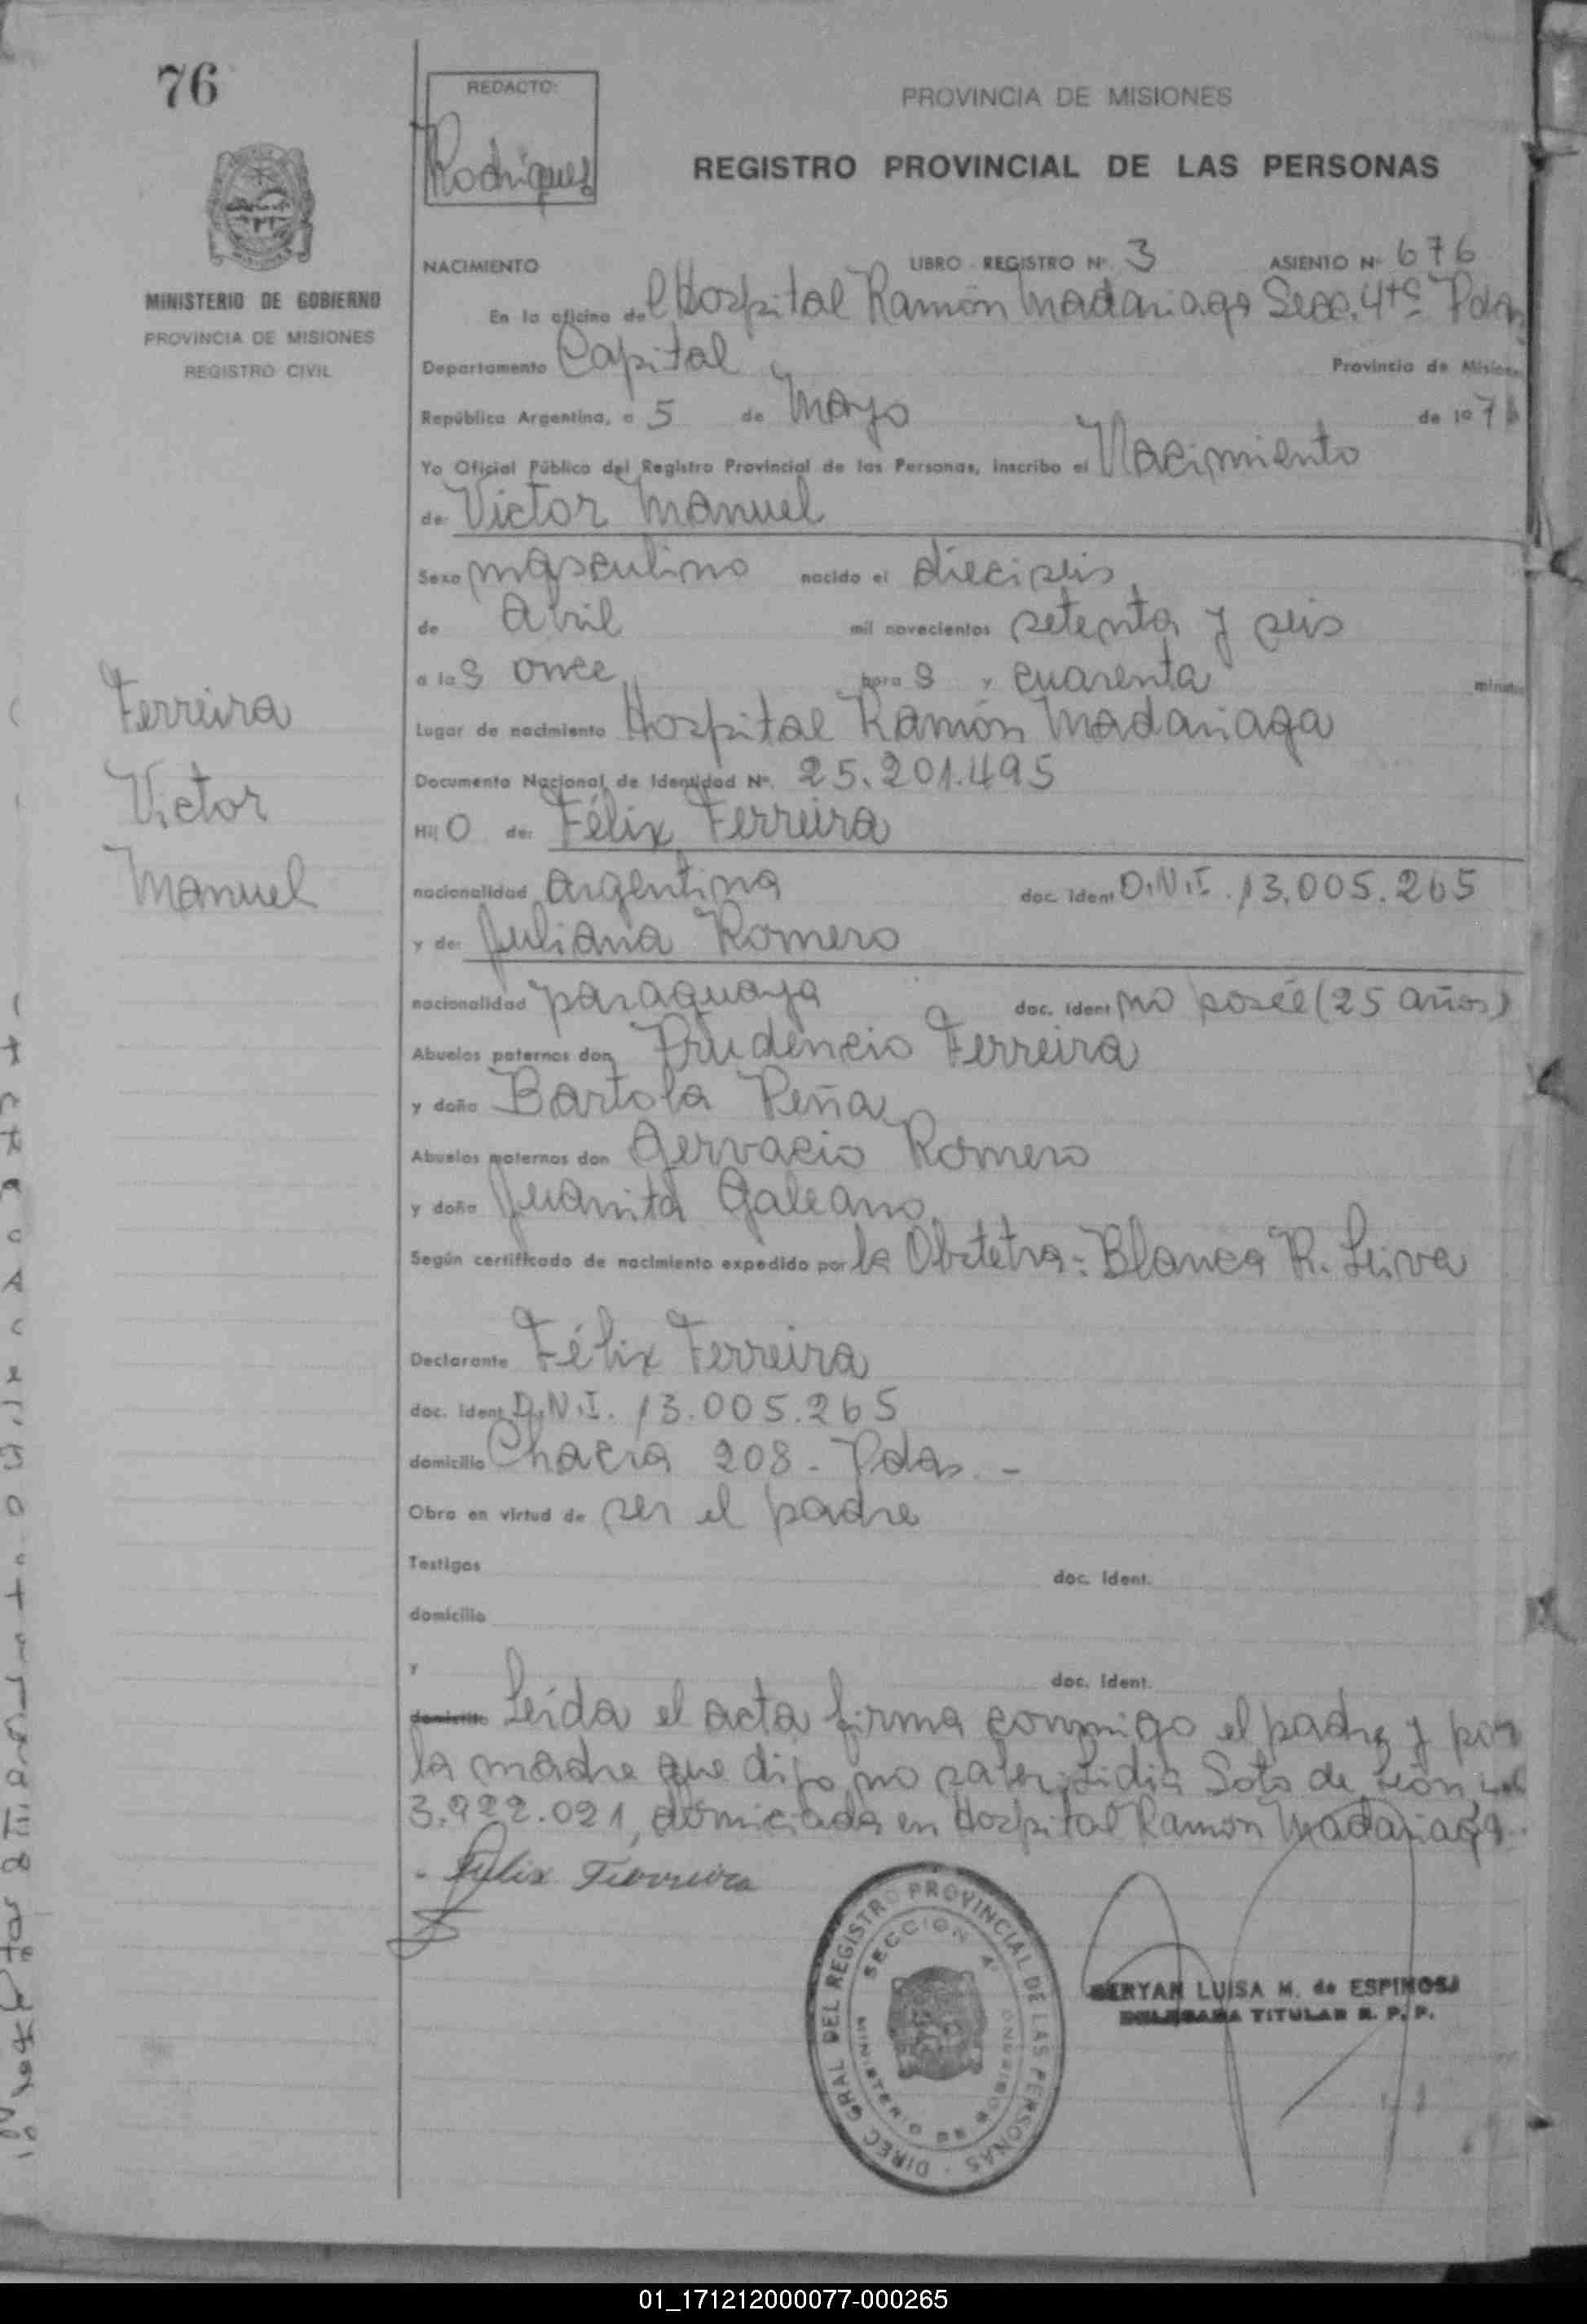 76
REDACTO:
Rodriguez
PROVINCIA DE MISIONES
REGISTRO PROVINCIAL DE LAS PERSONAS
MINISTERIO DE GOBIERNO
PROVINCIA DE MISIONES
REGISTRO CIVIL
NACIMIENTO LIBRO - REGISTRO Nº 3 ASIENTO Nº 676
En la oficina del Hospital Ramón Madariaga Secc. 4ta Pdas
Departamento Capital Provincia de Misiones
República Argentina, a 5 de Mayo de 1976
Yo Oficial Público del Registro Provincial de las Personas, inscribo el Nacimiento
de: Victor Manuel
Sexo masculino nacido el dieciseis
de Abril mil novecientos setenta y seis
a las once horas y cuarenta minutos
Lugar de nacimiento Hospital Ramón Madariaga
Documento Nacional de Identidad Nº. 25.201.495
Hijo de: Félix Ferreira
nacionalidad argentina doc. ident D.N.I. 13.005.265
y de: Juliana Romero
nacionalidad paraguaya doc. ident no poseé (25 años)
Abuelos paternos don Prudencio Ferreira
y doña Bartola Peña
Abuelos maternos don Gervacio Romero
y doña Juanita Galeano
Según certificado de nacimiento expedido por la Obstetra: Blanca R. Leiva
Declarante Félix Ferreira
doc. ident D.N.I. 13.005.265
domicilio Chacra 208 - Pdas. -
Obra en virtud de ser el padre
Testigos doc. Ident.
domicilio
y doc. Ident.
domicilio Leída el acta firma conmigo el padre y por
la madre que dijo no saber: Lidia Soto de León
3.922.021, domiciada en Hospital Ramón Madariaga.
Felix Ferreira
Ferreira
Victor
Manuel
DIREC. GRAL DEL REGISTRO PROVINCIAL DE LAS PERSONAS
SECCION 4ª
MINISTERIO DE GOBIERNO
MERYAN LUISA M. de ESPINOSA
DELEGADA TITULAR R. P. P.
01_171212000077-000265